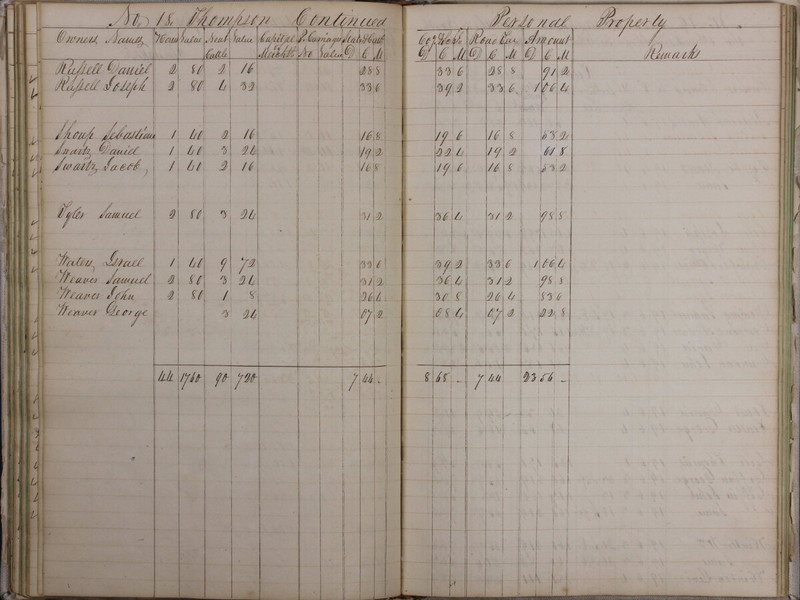 No. 18 Thompson Continued Personal Property
Owners Names Horses Value Neat Cattle Value Capital Merchts P. Carriages No Value State Tax D C M Co. & Sch. D C M Road Tax D C M Amount D C M Remarks
Russell Daniel 2 80 2 16 28 8 33 6 28 8 91 2
Russell Joseph 2 80 4 32 33 6 39 2 33 6 1 06 4
Shoup Sebastian 1 40 2 16 16 8 19 6 16 8 53 2
Swartz Daniel 1 40 3 24 19 2 22 4 19 2 61 8
Swartz Jacob 1 40 2 16 16 8 19 6 16 8 53 2
Tyler Samuel 2 80 3 24 31 2 36 4 31 2 98 8
Waters Israel 1 40 9 72 33 6 39 2 33 6 1 06 4
Weaver Samuel 2 80 3 24 31 2 36 4 31 2 98 8
Weaver John 2 80 1 8 26 4 30 8 26 4 83 6
Weaver George 3 24 07 2 08 4 07 2 22 8
44 1760 90 720 7 44 - 8 68 - 7 44 23 56 -